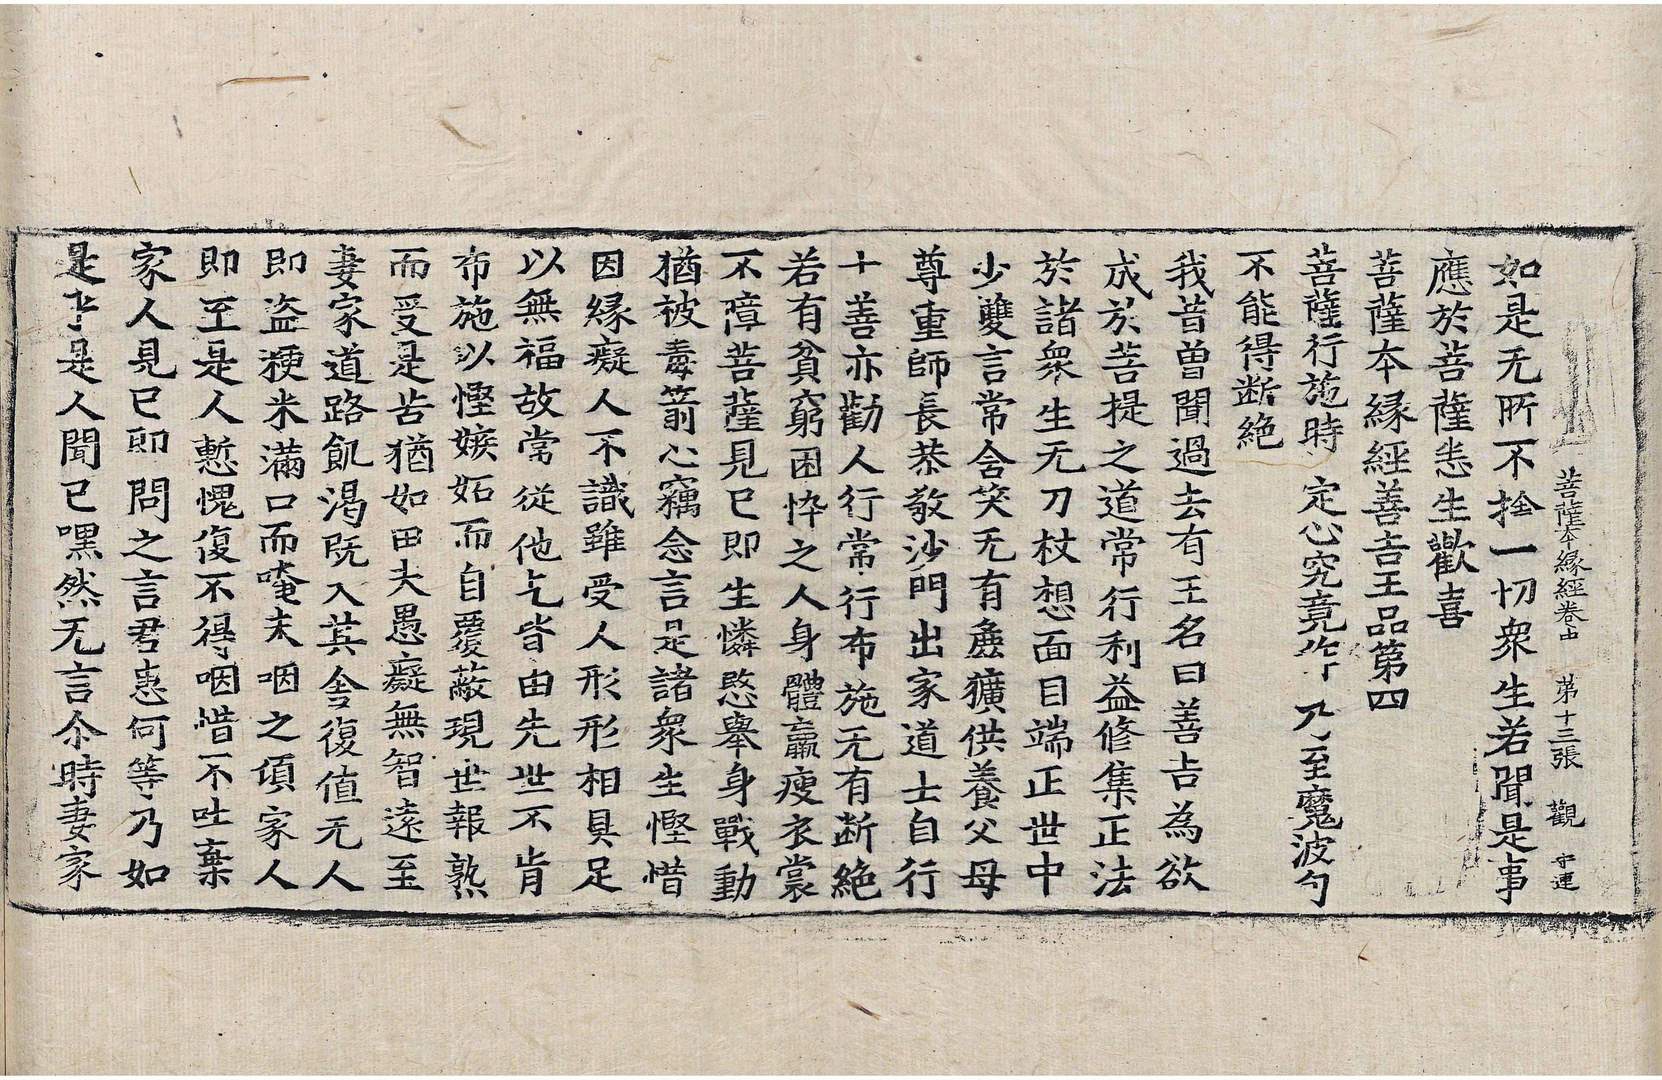 菩薩本緣經卷中 第十三張 觀 守連
如是无所不捨一切衆生若聞是事
應於菩薩恙生歡喜
菩薩本緣經善吉王品第四
菩薩行施時 定心究竟作 乃至魔波旬
不能得断絶
我昔曽聞過去有王名曰善吉為欲
成於菩提之道常行利益修集正法
於諸衆生无刀杖想面目端正世中
少雙言常含笑无有麁獷供養父母
尊重師長恭敬沙門出家道士自行
十善亦勸人行常行布施无有断絶
若有貧窮困悴之人身體羸瘦衣裳
不障菩薩見已即生憐愍舉身戰動
猶被毒箭心竊念言是諸衆生慳惜
因緣癡人不識雖受人形形相具足
以無福故常從他乞皆由先世不肯
布施以慳嫉妬而自覆蔽現世報熟
而受是苦猶如田夫愚癡無智遠至
妻家道路飢渴既入其舍復值无人
即盗粳米滿口而唵未咽之頃家人
即至是人慙愧復不得咽惜不吐棄
家人見已即問之言君患何等乃如
是乎是人聞已嘿然无言尒時妻家